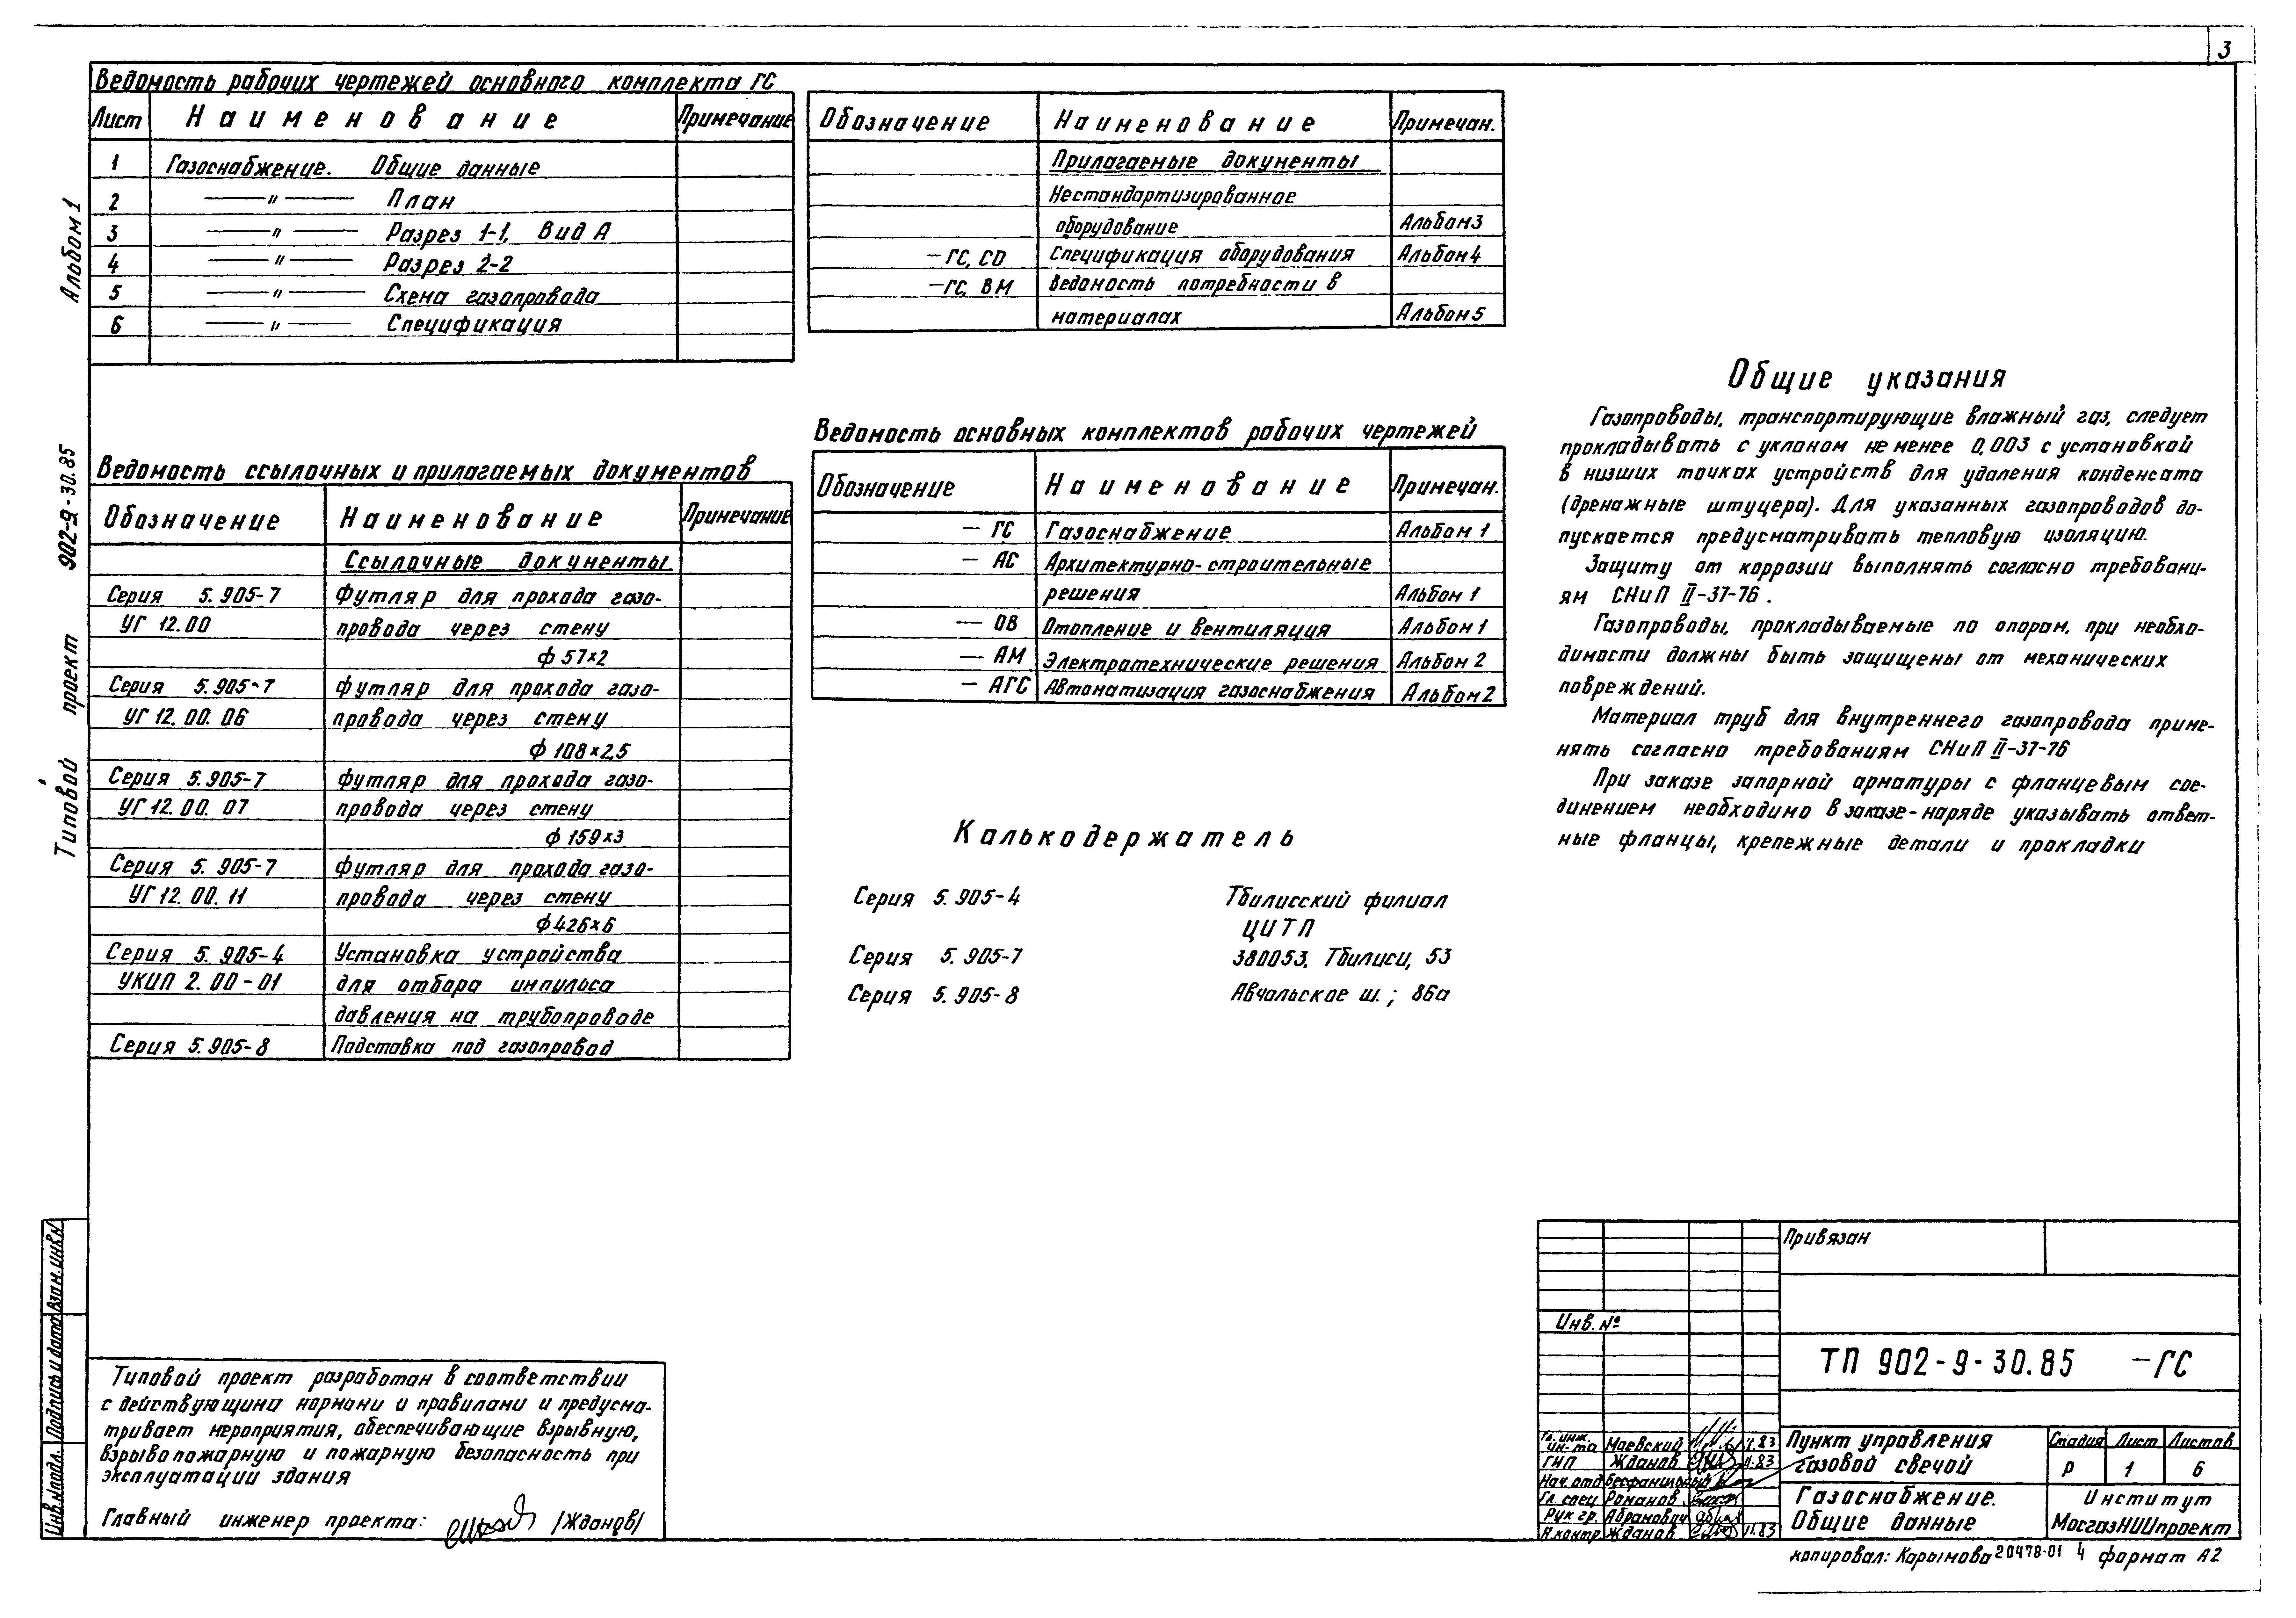 3
Альбом 1
Типовой проект 902-9-30.85
Ведомость рабочих чертежей основного комплекта ГС
Лист Наименование Примечание
1 Газоснабжение. Общие данные
2 —— " —— План
3 —— " —— Разрез 1-1, Вид А
4 —— " —— Разрез 2-2
5 —— " —— Схема газопровода
6 —— " —— Спецификация
Обозначение Наименование Примечан.
Прилагаемые документы
Нестандартизированное
оборудование Альбом 3
— ГС, СО Спецификация оборудования Альбом 4
— ГС, ВМ Ведомость потребности в
материалах Альбом 5
Ведомость ссылочных и прилагаемых документов
Обозначение Наименование Примечание
Ссылочные документы
Серия 5.905-7 Футляр для прохода газо-
УГ 12.00 провода через стену
ф 57×2
Серия 5.905-7 футляр для прохода газо-
УГ 12.00.06 провода через стену
ф 108×2,5
Серия 5.905-7 футляр для прохода газо-
УГ 12.00.07 провода через стену
ф 159×3
Серия 5.905-7 футляр для прохода газо-
УГ 12.00.11 провода через стену
ф 426×6
Серия 5.905-4 Установка устройства
УКИП 2.00-01 для отбора импульса
давления на трубопроводе
Серия 5.905-8 Подставка под газопровод
Ведомость основных комплектов рабочих чертежей
Обозначение Наименование Примечан.
— ГС Газоснабжение Альбом 1
— АС Архитектурно-строительные
решения Альбом 1
— ОВ Отопление и вентиляция Альбом 1
— АМ Электротехнические решения Альбом 2
— АГС Автоматизация газоснабжения Альбом 2
Калькодержатель
Серия 5.905-4 Тбилисский филиал
ЦИТП
Серия 5.905-7 380053, Тбилиси, 53
Серия 5.905-8 Авчальское ш.; 86а
Общие указания
Газопроводы, транспортирующие влажный газ, следует
прокладывать с уклоном не менее 0,003 с установкой
в низших точках устройств для удаления конденсата
(дренажные штуцера). Для указанных газопроводов до-
пускается предусматривать тепловую изоляцию.
Защиту от коррозии выполнять согласно требовани-
ям СНиП II-37-76.
Газопроводы, прокладываемые по опорам, при необхо-
димости должны быть защищены от механических
повреждений.
Материал труб для внутреннего газопровода приме-
нять согласно требованиям СНиП II-37-76
При заказе запорной арматуры с фланцевым сое-
динением необходимо в заказе-наряде указывать ответ-
ные фланцы, крепежные детали и прокладки
Типовой проект разработан в соответствии
с действующими нормами и правилами и предусма-
тривает мероприятия, обеспечивающие взрывную,
взрывопожарную и пожарную безопасность при
эксплуатации здания
Главный инженер проекта: /Жданов/
Инв.№подл. Подпись и дата Взам.инв.№
Привязан
Инв. №
ТП 902-9-30.85 —ГС
Гл. инж.
ин-та Маевский VI.83
ГИП Жданов VI.83
Нач.отд Бесфамильный
Гл. спец Романов
Рук гр. Абрамович
Н.контр. Жданов VI.83
Пункт управления
газовой свечой
Стадия Лист Листов
Р 1 6
Газоснабжение.
Общие данные
Институт
МосгазНИИпроект
копировал: Карымова 20478-01 4 формат А2